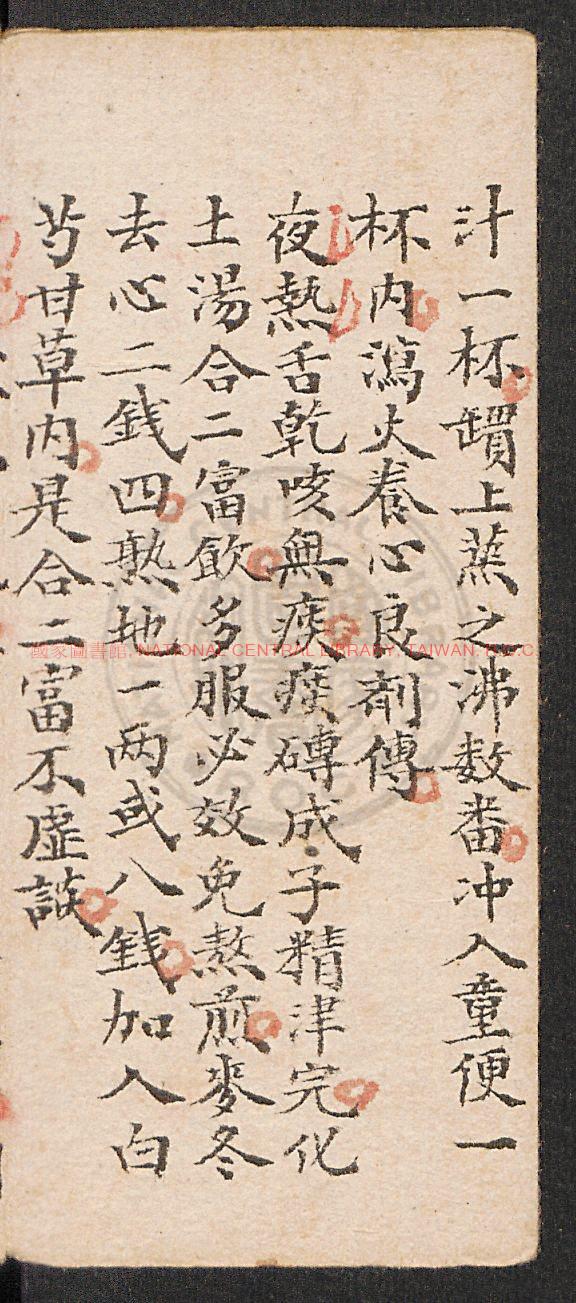 汁一杯罐上蒸之沸数畨冲入童便一
杯内瀉火養心良剤傳
夜熱舌乾咳無痰痰磚成子精津完化
土湯合二富飲多服必效免熬煎麥冬
去心二錢四熟地一两或八錢加入白
芍甘草内是合二富不虚談
國家圖書館, NATIONAL CENTRAL LIBRARY, TAIWAN, R.O.C